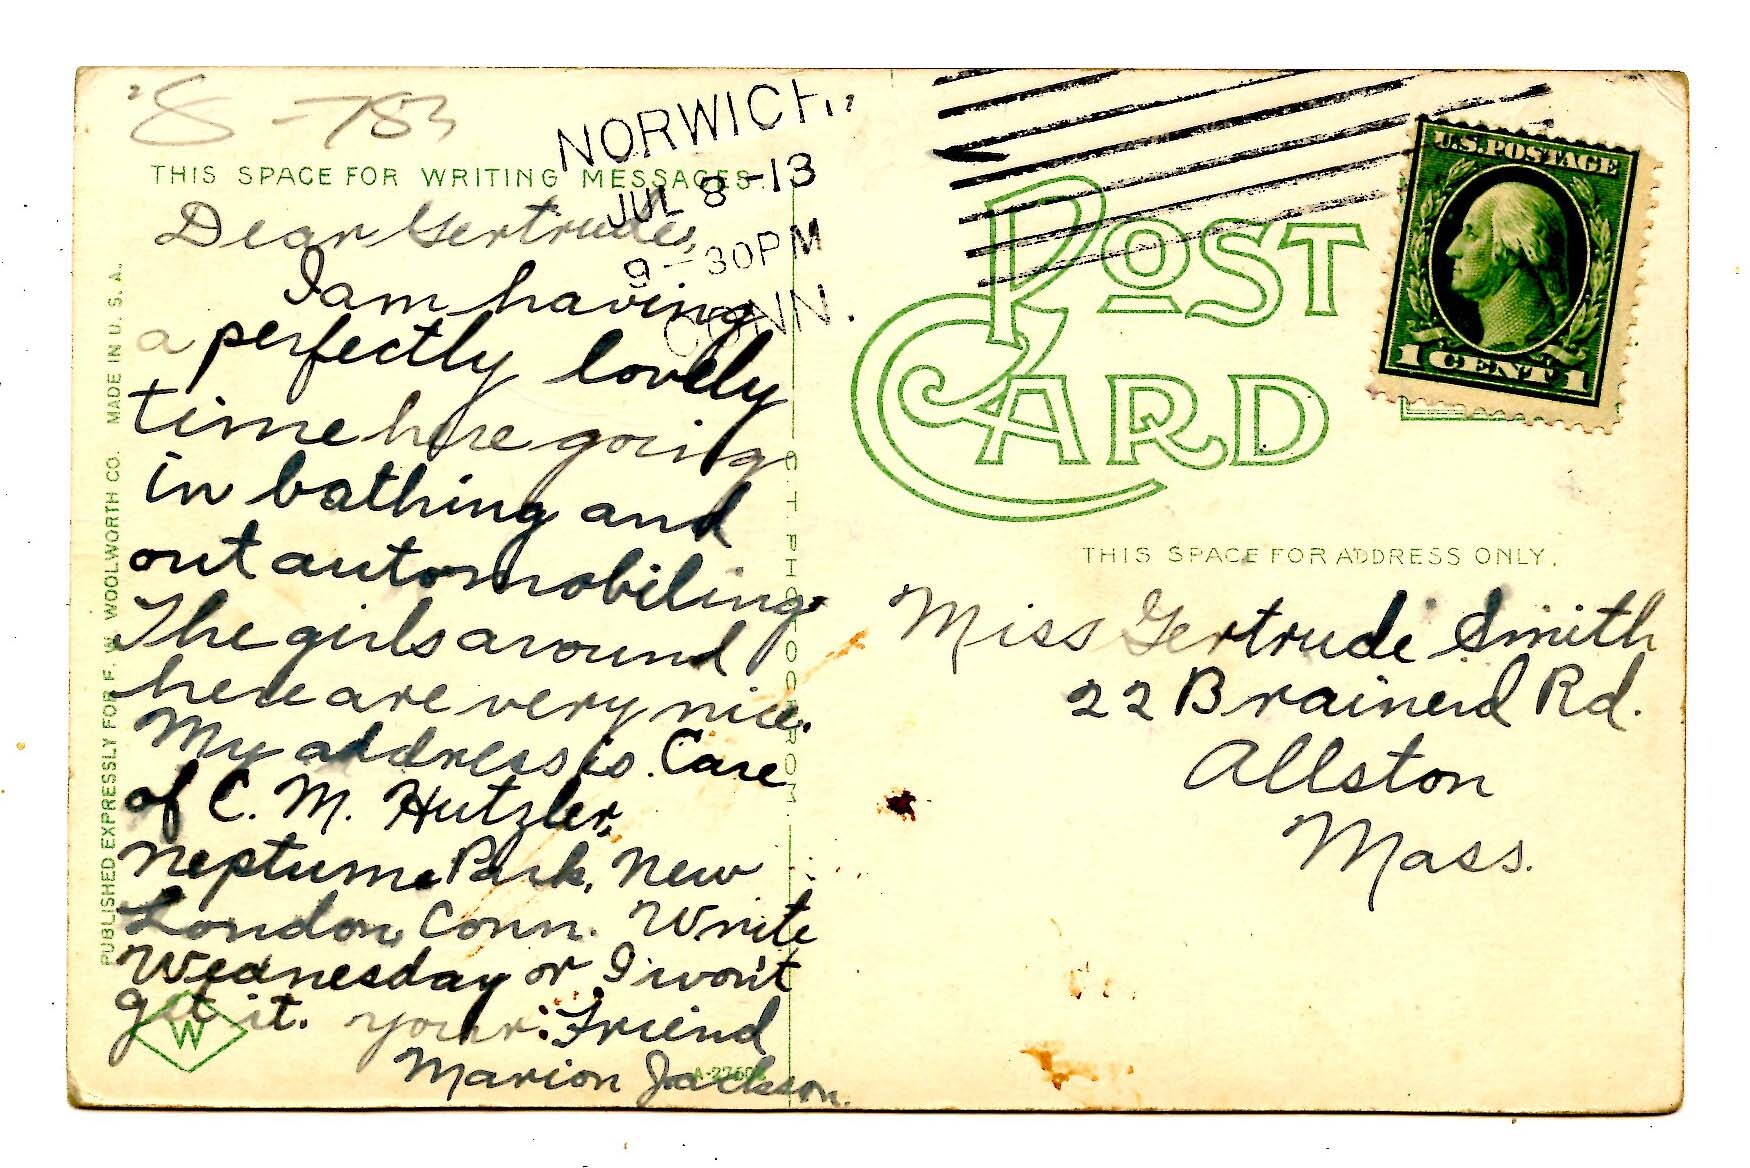 8-783
NORWICH,
JUL 8-13
9-30PM
CONN.
U.S. POSTAGE
1 CENT 1
THIS SPACE FOR WRITING MESSAGES.
POST
CARD
THIS SPACE FOR ADDRESS ONLY.
Dear Gertrude,
I am having
a perfectly lovely
time here going
in bathing and
out automobiling.
The girls around
here are very nice.
My address is. Care
of C. M. Hutzler,
Neptune Park, New
London, Conn. Write
Wednesday or I won't
get it. your Friend
Marion Jackson.
Miss Gertrude Smith
22 Brainerd Rd.
Allston
Mass.
PUBLISHED EXPRESSLY FOR F. W. WOOLWORTH CO. MADE IN U. S. A.
C. T. PHOTOCHROM
W